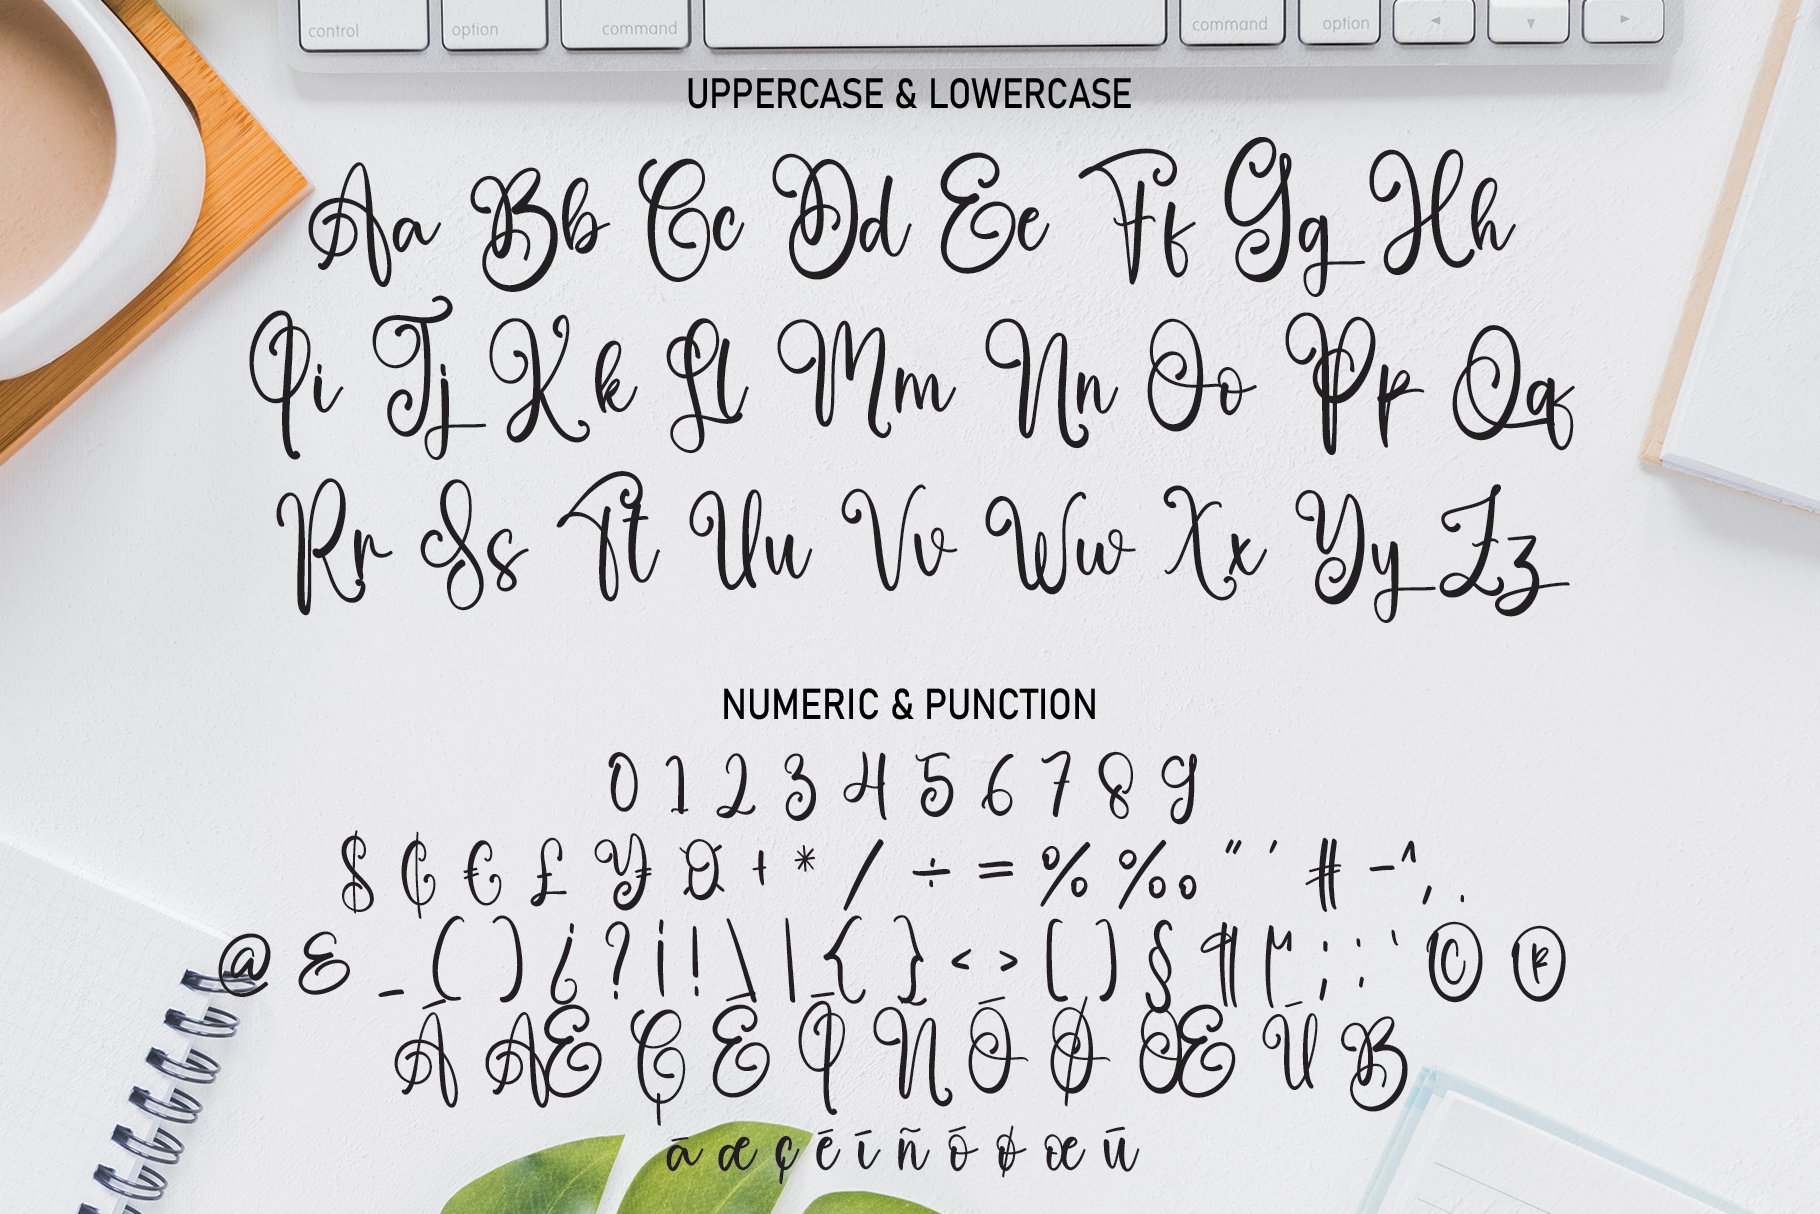 control option command command option ◂ ▾ ▸
UPPERCASE & LOWERCASE
Aa Bb Cc Dd Ee Ff Gg Hh
Ii Jj Kk Ll Mm Nn Oo Pp Qq
Rr Ss Tt Uu Vv Ww Xx Yy Zz
NUMERIC & PUNCTION
0 1 2 3 4 5 6 7 8 9
$ ¢ € £ ¥ ¤ + * / ÷ = % ‰ " ' # - ^ , .
@ & _ ( ) ¿ ? ¡ ! \ | { } < > [ ] § ¶ µ ; : ` © ®
Á Æ Ç É Í N Ó Ø Œ Ú B
á æ ç é í ñ ó ø œ ú